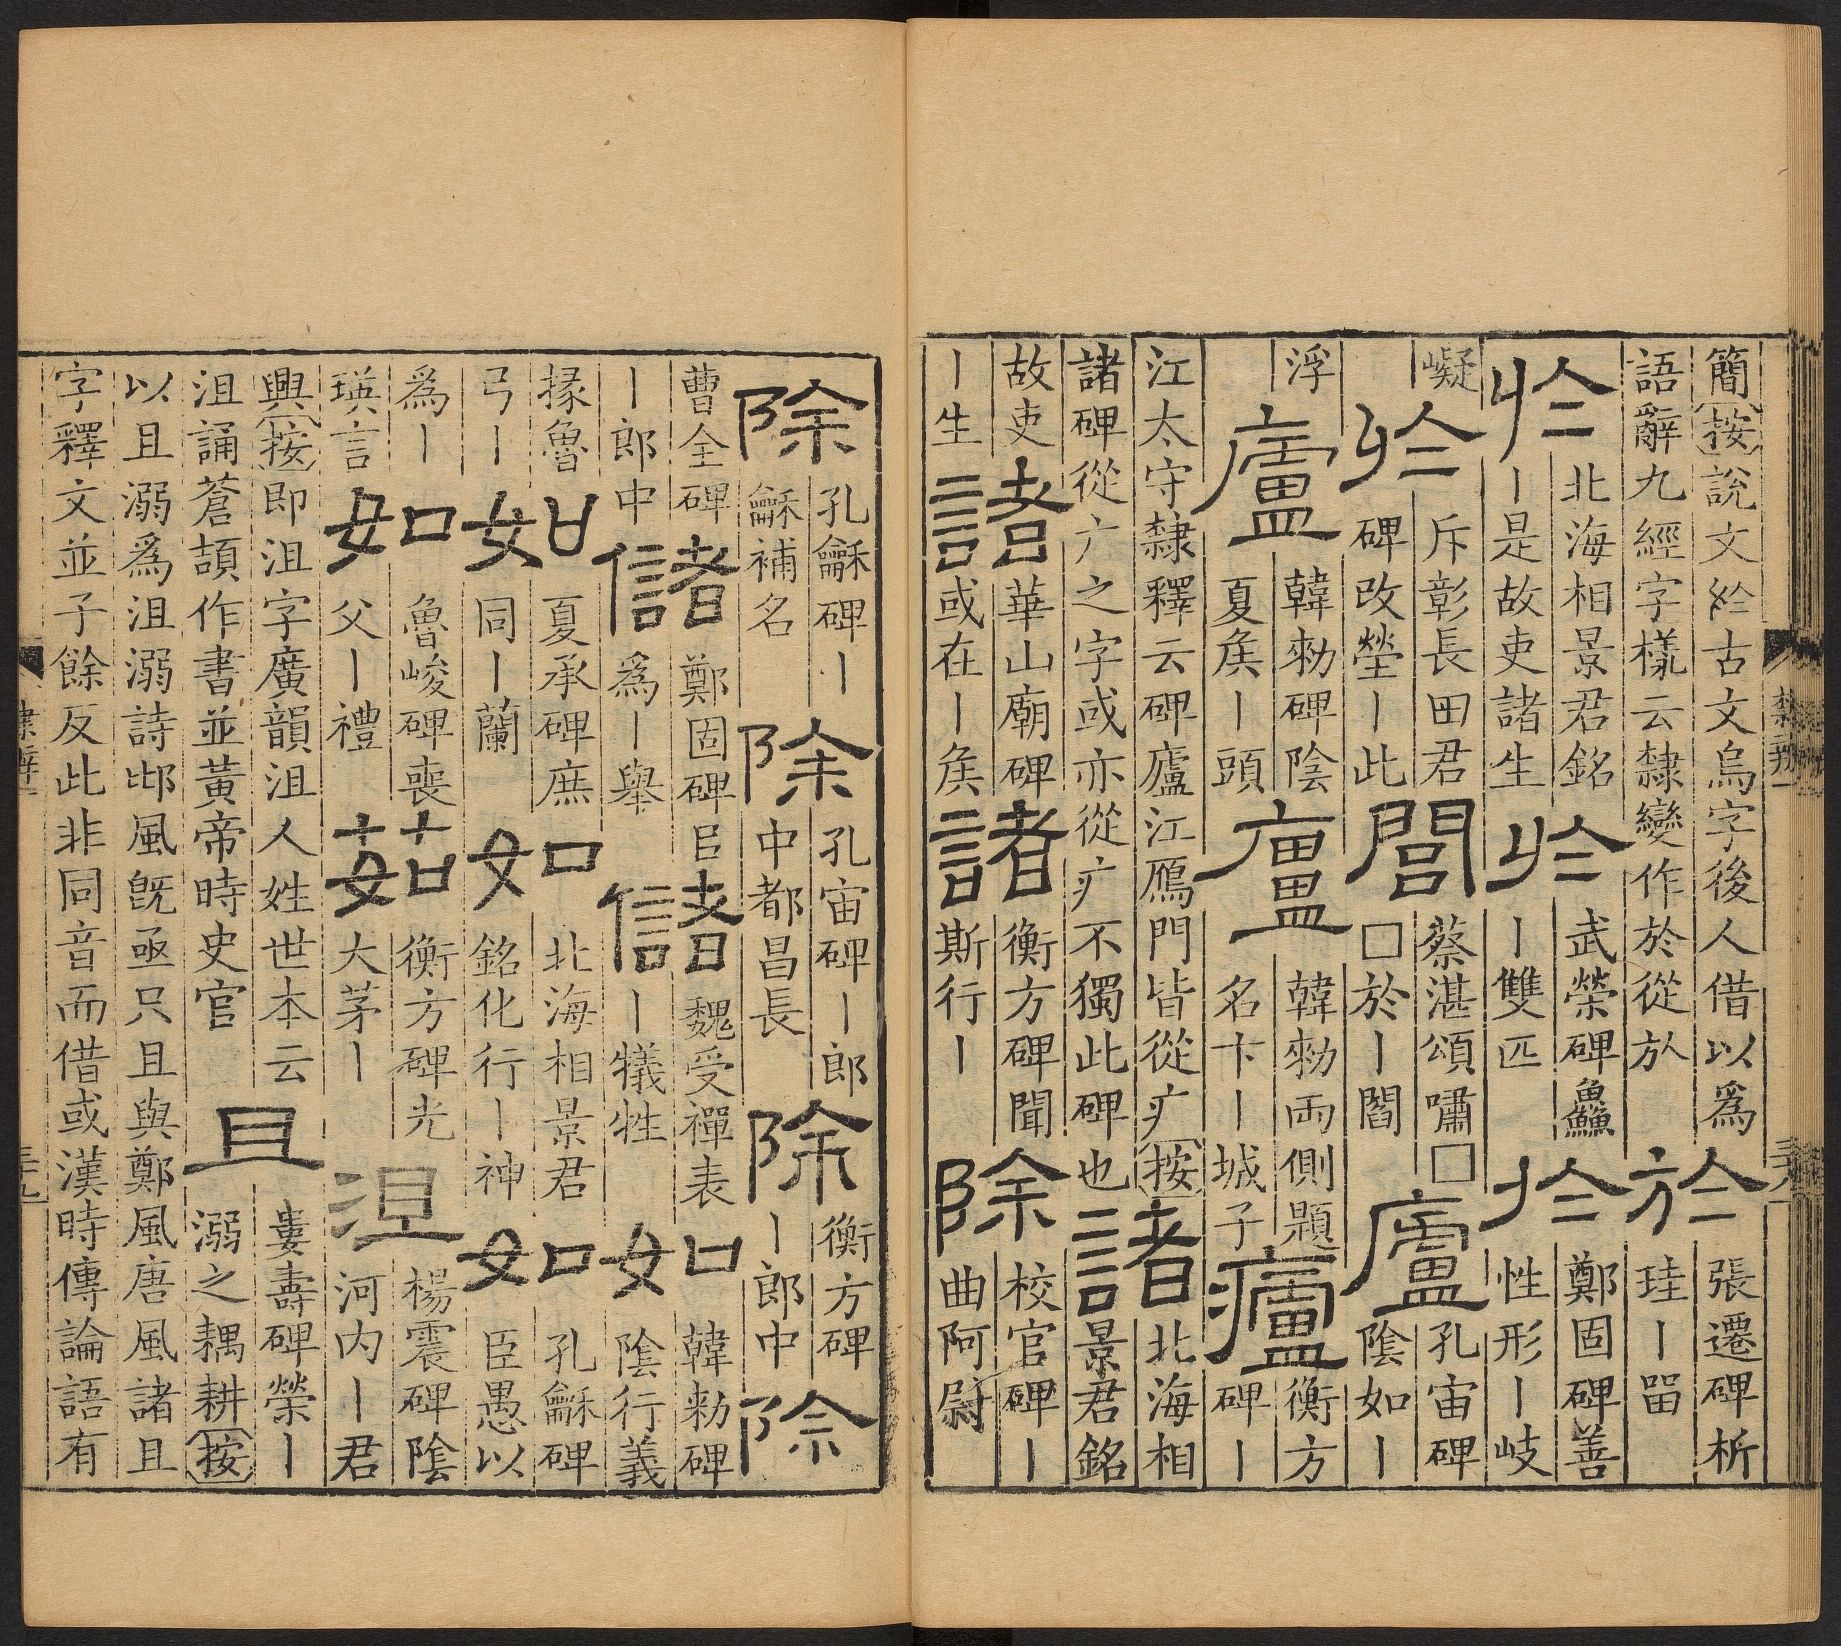 簡按說文於古文烏字後人借以爲
語辭九經字樣云隸變作於從㫃
於
張遷碑析
珪丨畱
於
北海相景君銘
丨是故吏諸生
於
武榮碑鱻
丨雙匹
於
鄭固碑善
性形丨岐
嶷
於
斥彰長田君
碑改塋丨此
閭
蔡湛頌嘯□
□於丨閻
廬
孔宙碑
陰如丨
浮
廬
韓勑碑陰
夏矦丨頭
廬
韓勑兩側題
名卞丨城子
廬
衡方
碑丨
江太守隸釋云碑廬江雁門皆從疒按
諸碑從广之字或亦從疒不獨此碑也
諸
北海相
景君銘
故吏
丨生
諸
華山廟碑
或在丨矦
諸
衡方碑聞
斯行丨
除
校官碑丨
曲阿尉
除
孔龢碑丨
龢補名
除
孔宙碑丨郎
中都昌長
除
衡方碑
丨郎中
除
曹全碑
丨郎中
諸
鄭固碑臣
爲丨舉
諸
魏受禪表
丨犧牲
如
韓勑碑
陰行義
掾魯
弓丨
如
夏承碑庶
同丨蘭
如
北海相景君
銘化行丨神
如
孔龢碑
臣愚以
爲丨
瑛言
如
魯峻碑喪
父丨禮
茹
衡方碑光
大茅丨
沮
楊震碑陰
河内丨君
興按即沮字廣韻沮人姓世本云
沮誦蒼頡作書並黃帝時史官
且
婁壽碑榮丨
溺之耦耕按
以且溺爲沮溺詩邶風旣亟只且與鄭風唐風諸且
字釋文並子餘反此非同音而借或漢時傳論語有